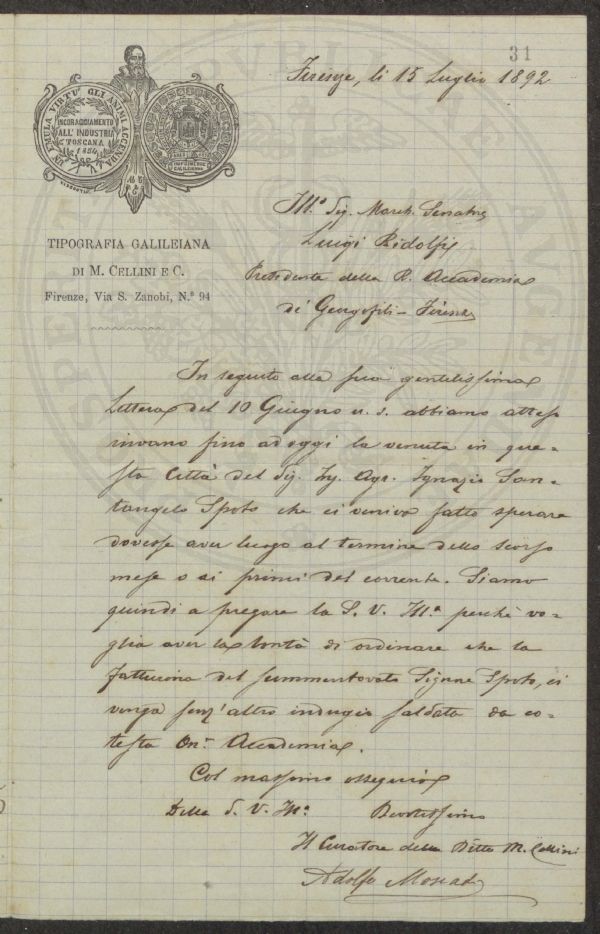 31
Firenze, li 15 Luglio 1892
UN EMULA VIRTU' GLI ANIMI ACCENDA
INCORAGGIAMENTO
ALL' INDUSTRIA
TOSCANA
1854
TIPOGRAFIA GALILEIANA
DI M. CELLINI E C.
Firenze, Via S. Zanobi, N.º 94
Ill.º Sig. March. Senatore
Luigi Ridolfi
Presidente della R. Accademia
di Georgofili - Firenze
In seguito alla sua gentilissima
lettera del 10 Giugno u. s. abbiamo atteso
invano fino ad oggi la venuta in que-
sta Città del Sig. Ing. Agr. Ignazio San-
tangelo Spoto che ci veniva fatto sperare
dovesse aver luogo al termine dello scorso
mese o ai primi del corrente. Siamo
quindi a pregare la S. V. Ill.ª perchè vo-
glia aver la bontà di ordinare che la
fatturina del summentovato Signore Spoto, ci
venga senz'altro indugio saldata da co-
testa On.ª Accademia.
Col massimo ossequio
Della S. V. Ill.ª Devotissimo
Il Curatore della Ditta M. Cellini
Adolfo